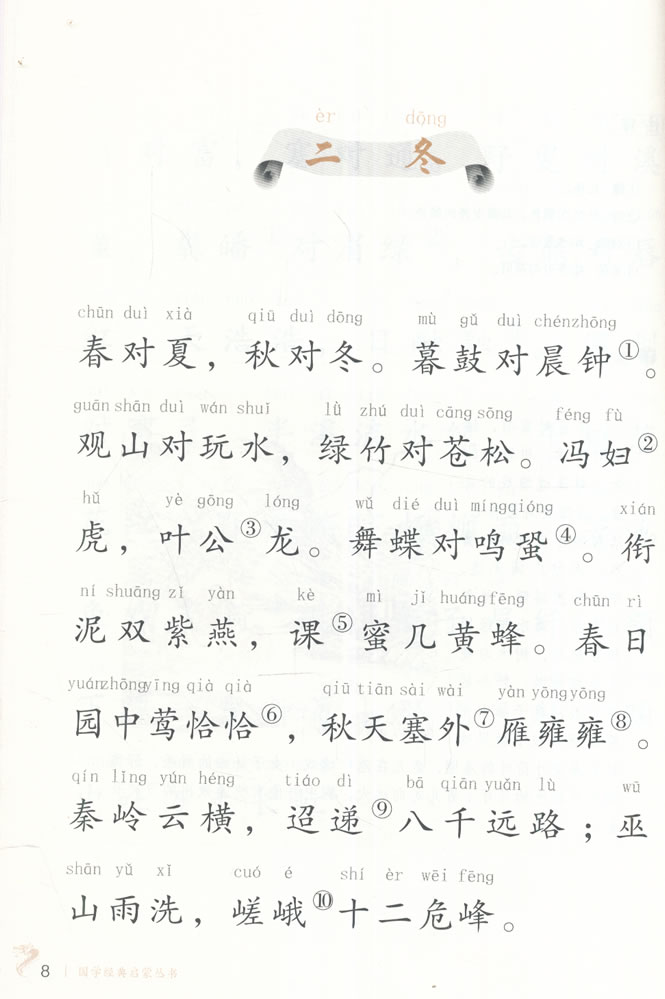 èr dōng
二 冬
chūn duì xià qiū duì dōng mù gǔ duì chénzhōng
春对夏，秋对冬。暮鼓对晨钟①。
guān shān duì wán shuǐ lǜ zhú duì cāng sōng féng fù
观山对玩水，绿竹对苍松。冯妇②
hǔ yè gōng lóng wǔ dié duì míngqióng xián
虎，叶公③龙。舞蝶对鸣蛩④。衔
ní shuāng zǐ yàn kè mì jǐ huáng fēng chūn rì
泥双紫燕，课⑤蜜几黄蜂。春日
yuánzhōngyīng qià qià qiū tiān sài wài yàn yōng yōng
园中莺恰恰⑥，秋天塞外⑦雁雍雍⑧。
qín lǐng yún héng tiáo dì bā qiān yuǎn lù wū
秦岭云横，迢递⑨八千远路；巫
shān yǔ xǐ cuó é shí èr wēi fēng
山雨洗，嵯峨⑩十二危峰。
8 国学经典启蒙丛书